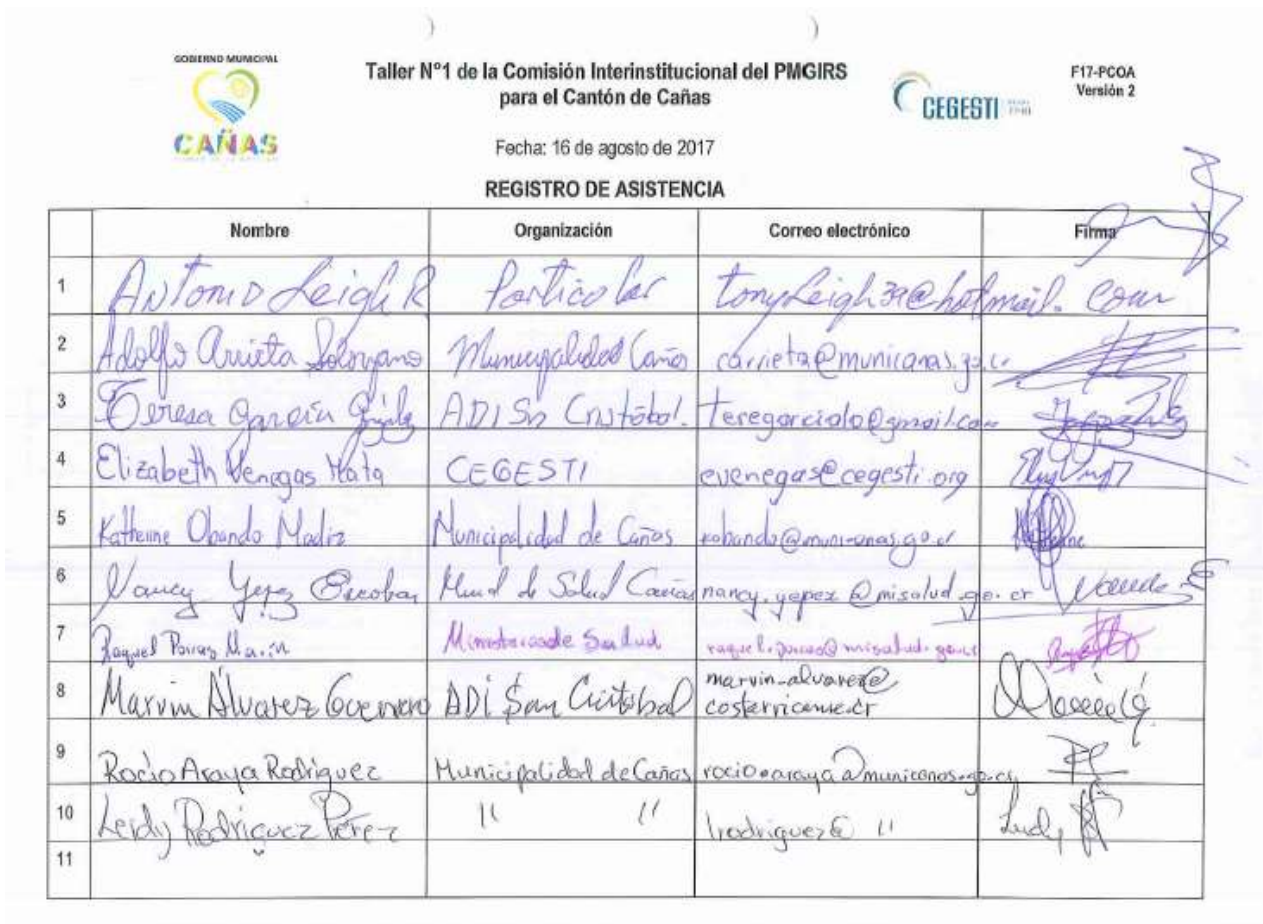 GOBIERNO MUNICIPAL
CAÑAS
Taller N°1 de la Comisión Interinstitucional del PMGIRS
para el Cantón de Cañas
CEGESTI
F17-PCOA
Versión 2
Fecha: 16 de agosto de 2017
REGISTRO DE ASISTENCIA
Nombre Organización Correo electrónico Firma
1 Antonio Leigh R Particular tonyleigh39@hotmail.com
2 Adolfo Arrieta Solorzano Municipalidad Cañas carrieta@municanas.go.cr
3 Teresa García ADI Sn Cristóbal.
4 Elizabeth Venegas Mata CEGESTI evenegas@cegesti.org
5 Katherine Obando Madiz Municipalidad de Cañas
6 Nancy Yepez Escobar de Salud Cañas nancy.yepez@misalud.go.cr
7 Raquel Porras Marín Ministerio de Salud
8 Marvin Álvarez Guerrero ADI San Cristobal marvin-alvarez@
costarricense.cr
9 Rocío Araya Rodríguez Municipalidad de Cañas rocio.araya@municanas.go.cr
10 Leidy Rodríguez Pérez " " lrodriguez@ "
11